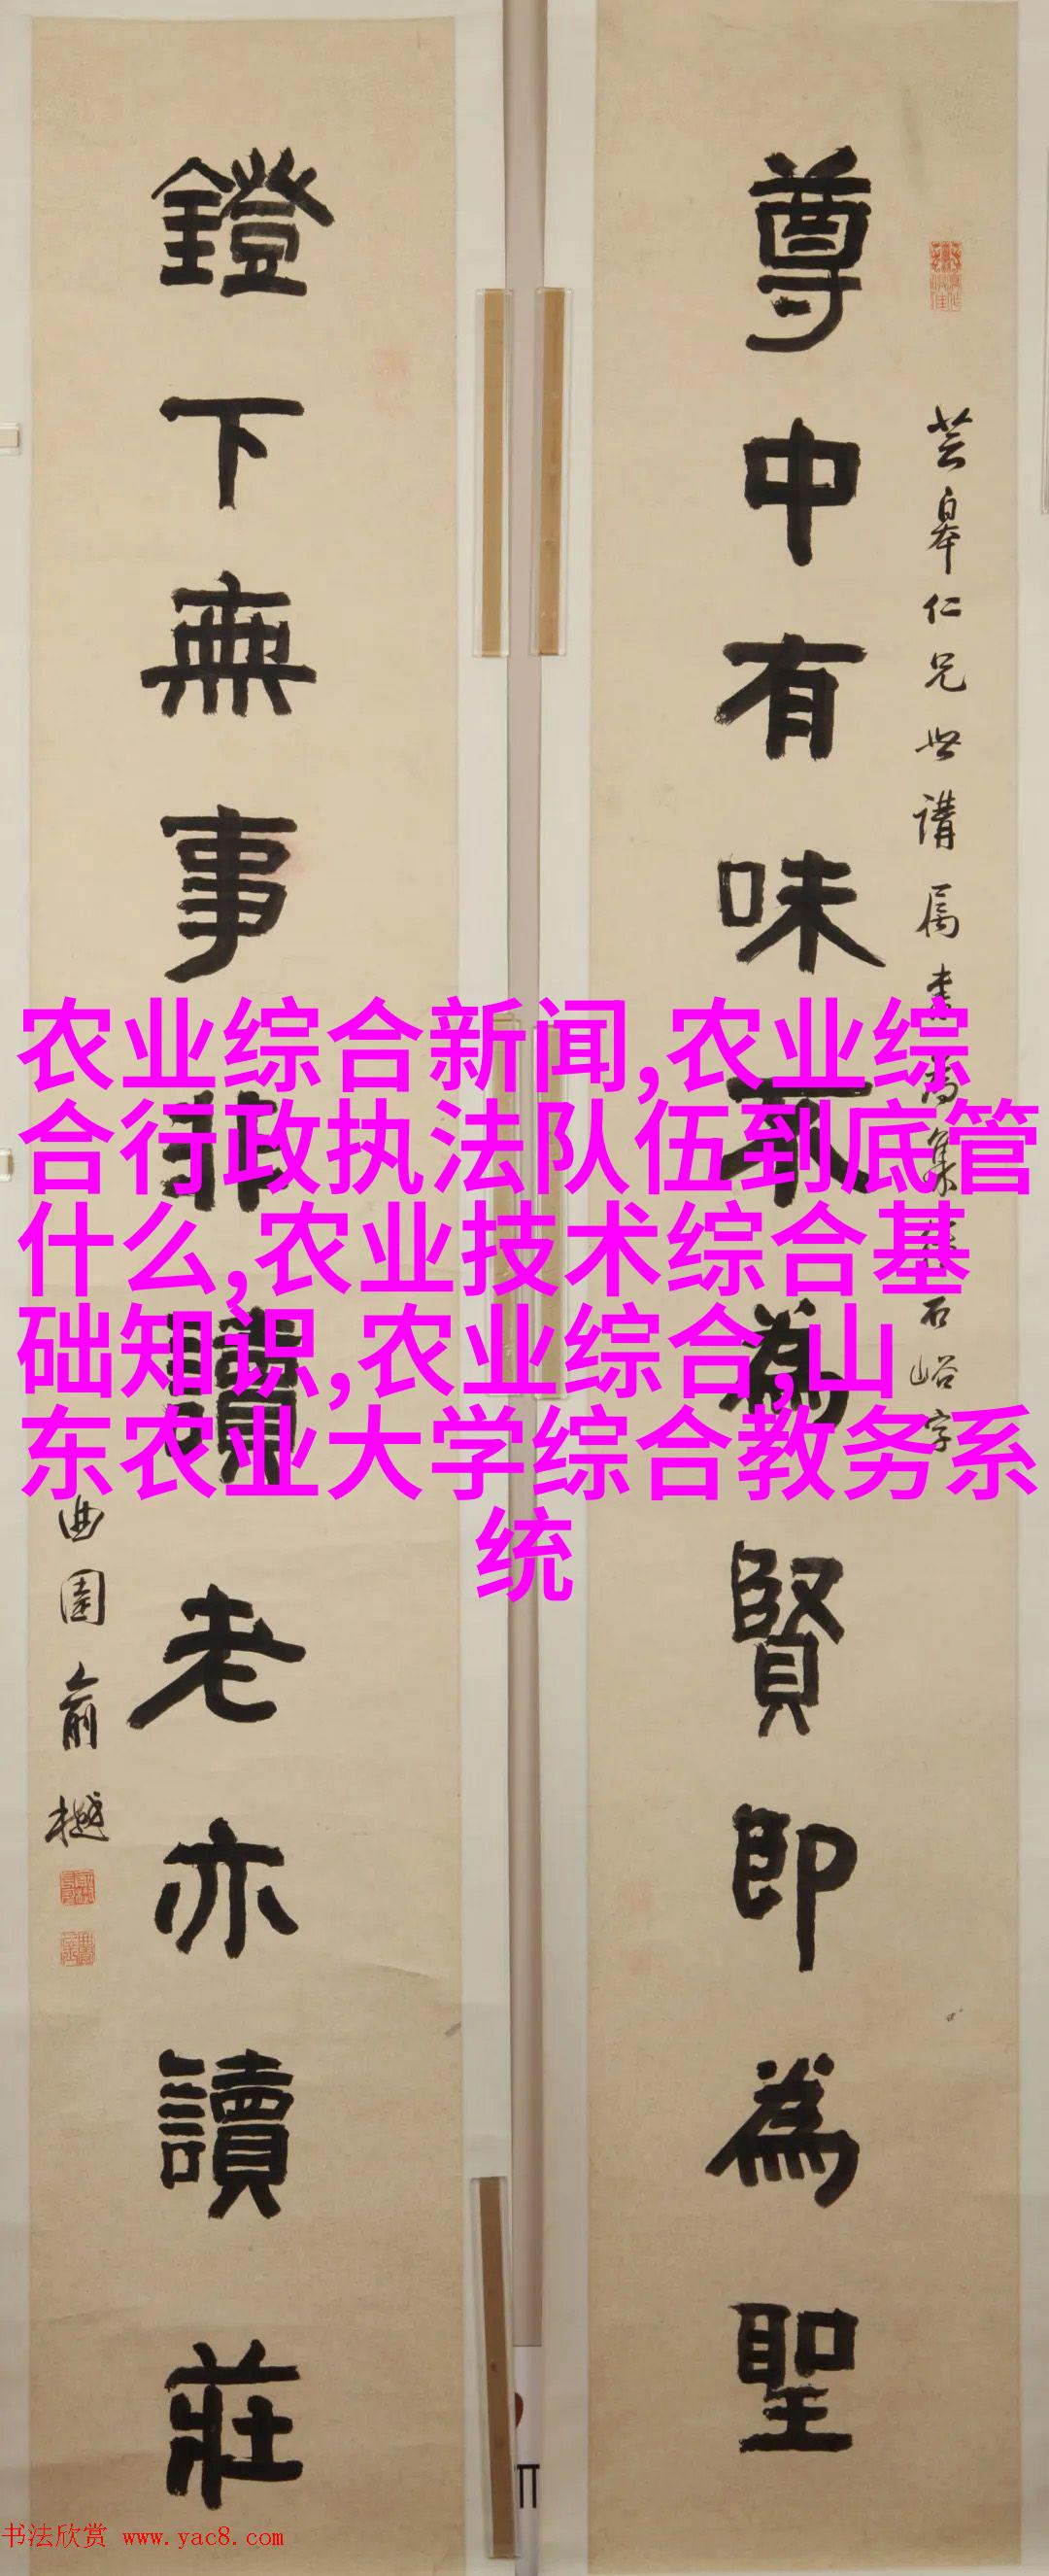 芸皋仁兄世講属書為集經石峪字
尊中有味不為賢即為聖
鐙下無事非讀老亦讀莊
曲園俞樾
农业综合新闻,农业综
合行政执法队伍到底管
什么,农业技术综合基
础知识,农业综合,山
东农业大学综合教务系
统
书法欣赏 www.yac8.com